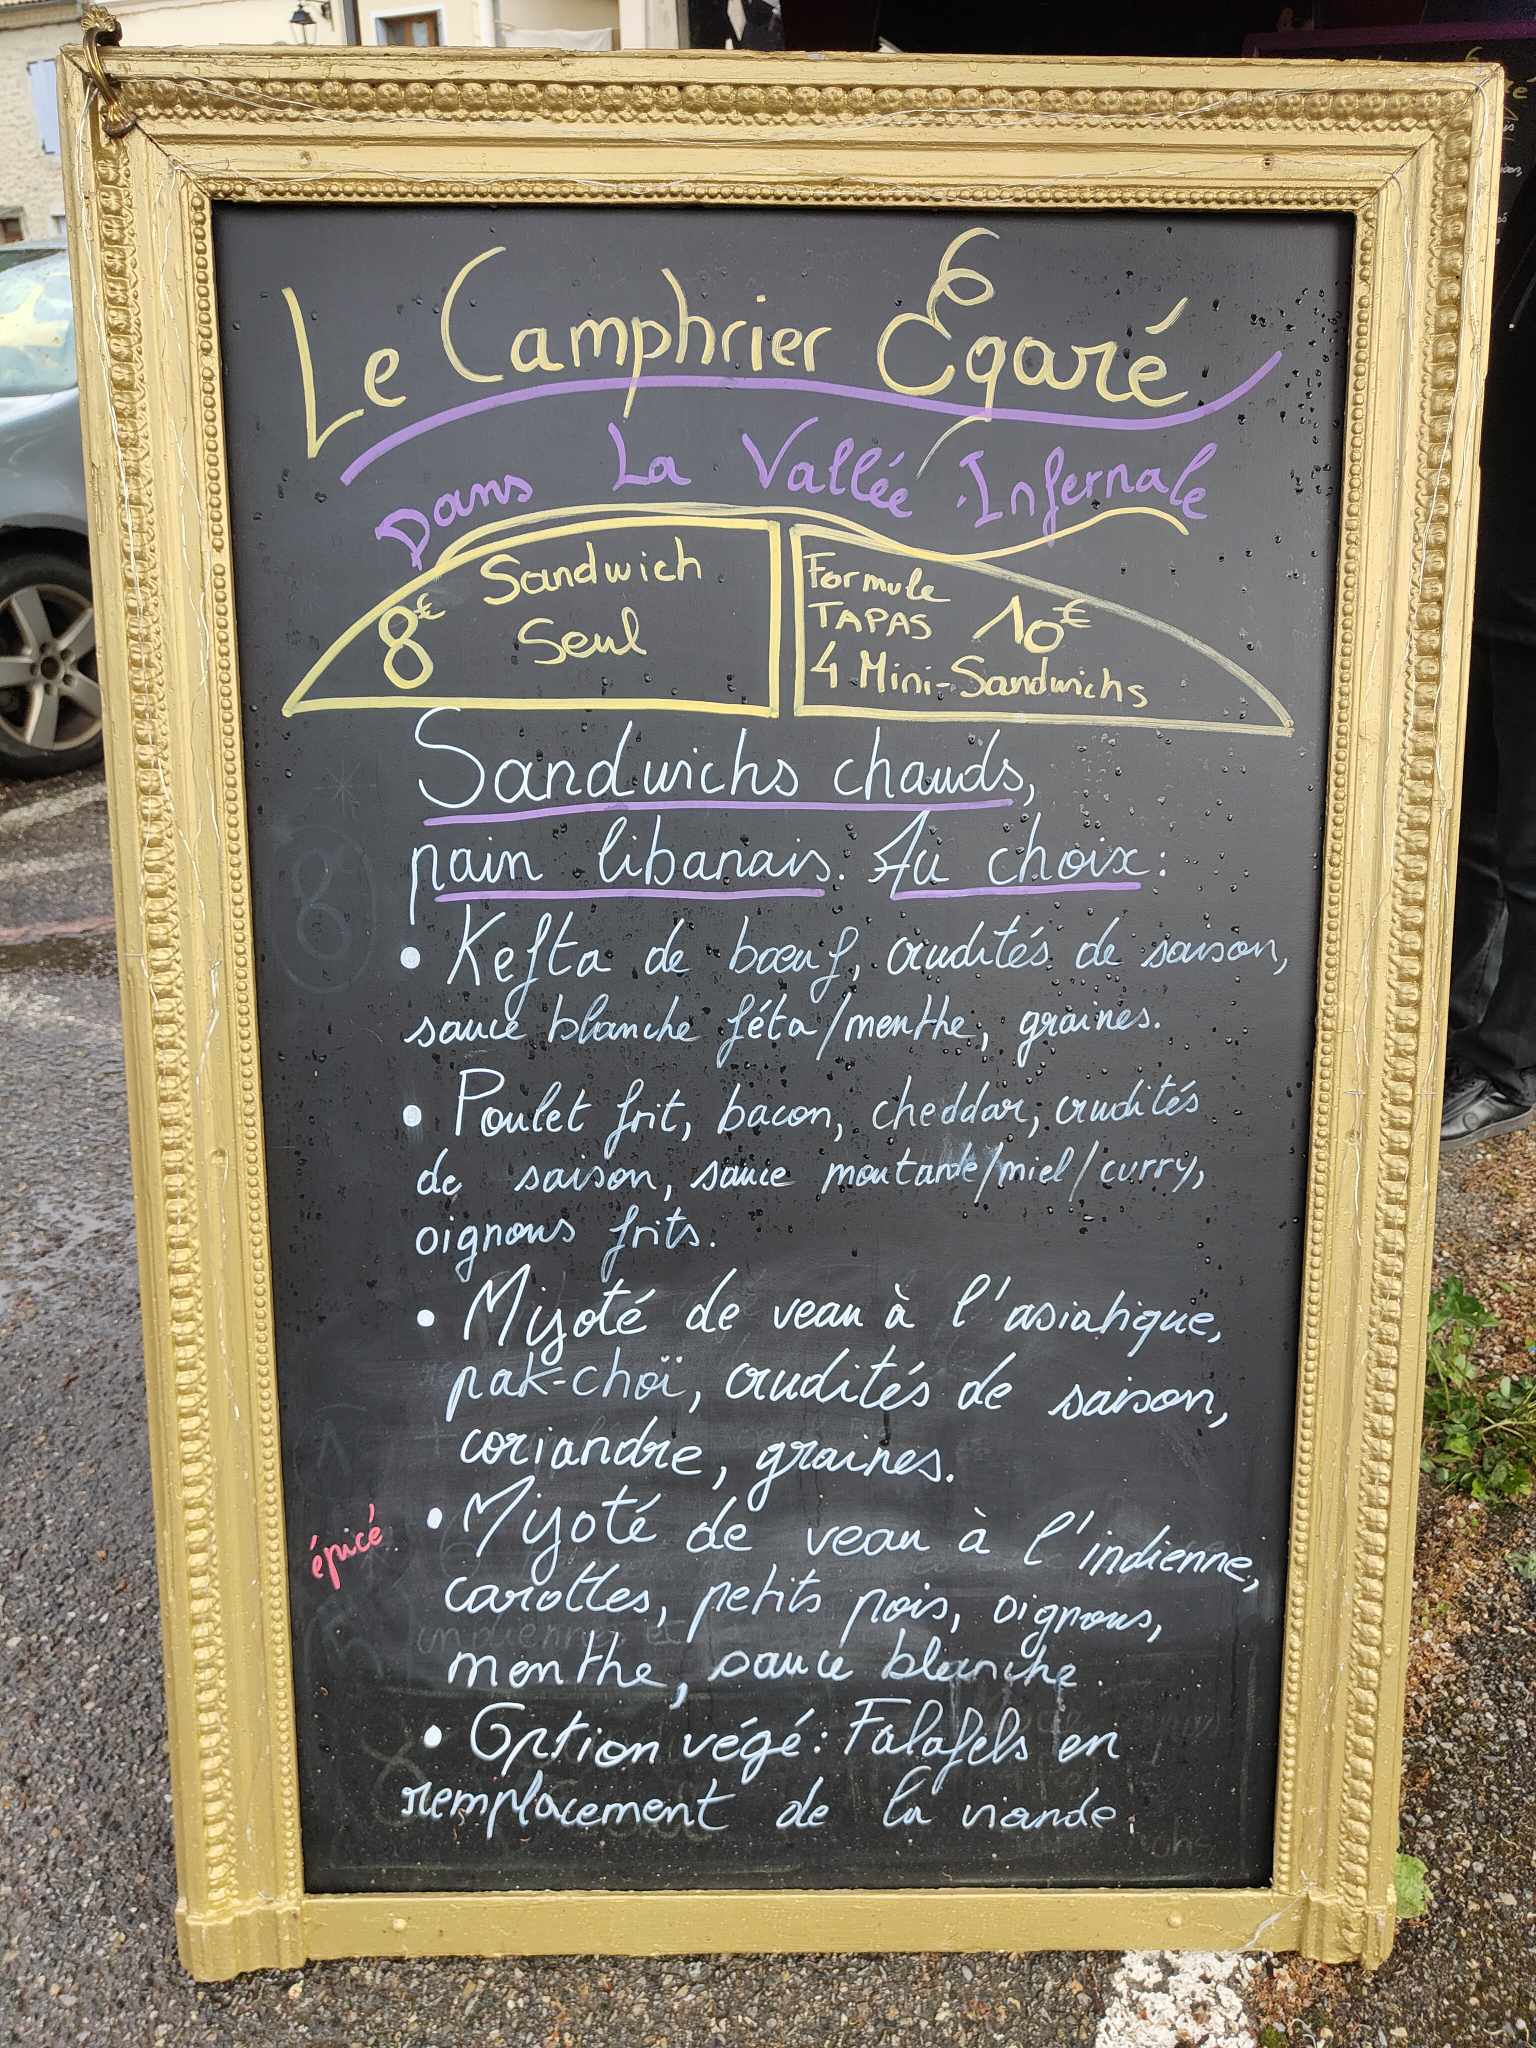 Le Camphrier Egaré
Dans La Vallée Infernale
8€ Sandwich
Seul
Formule
TAPAS 10€
4 Mini-Sandwichs
Sandwichs chauds,
pain libanais. Au choix :
• Kefta de bœuf, crudités de saison,
sauce blanche féta/menthe, graines.
• Poulet frit, bacon, cheddar, crudités
de saison, sauce moutarde/miel/curry,
oignons frits.
• Mijoté de veau à l'asiatique,
pak-choï, crudités de saison,
coriandre, graines.
épicé • Mijoté de veau à l'indienne,
carottes, petits pois, oignons,
menthe, sauce blanche.
• Option végé : Falafels en
remplacement de la viande.